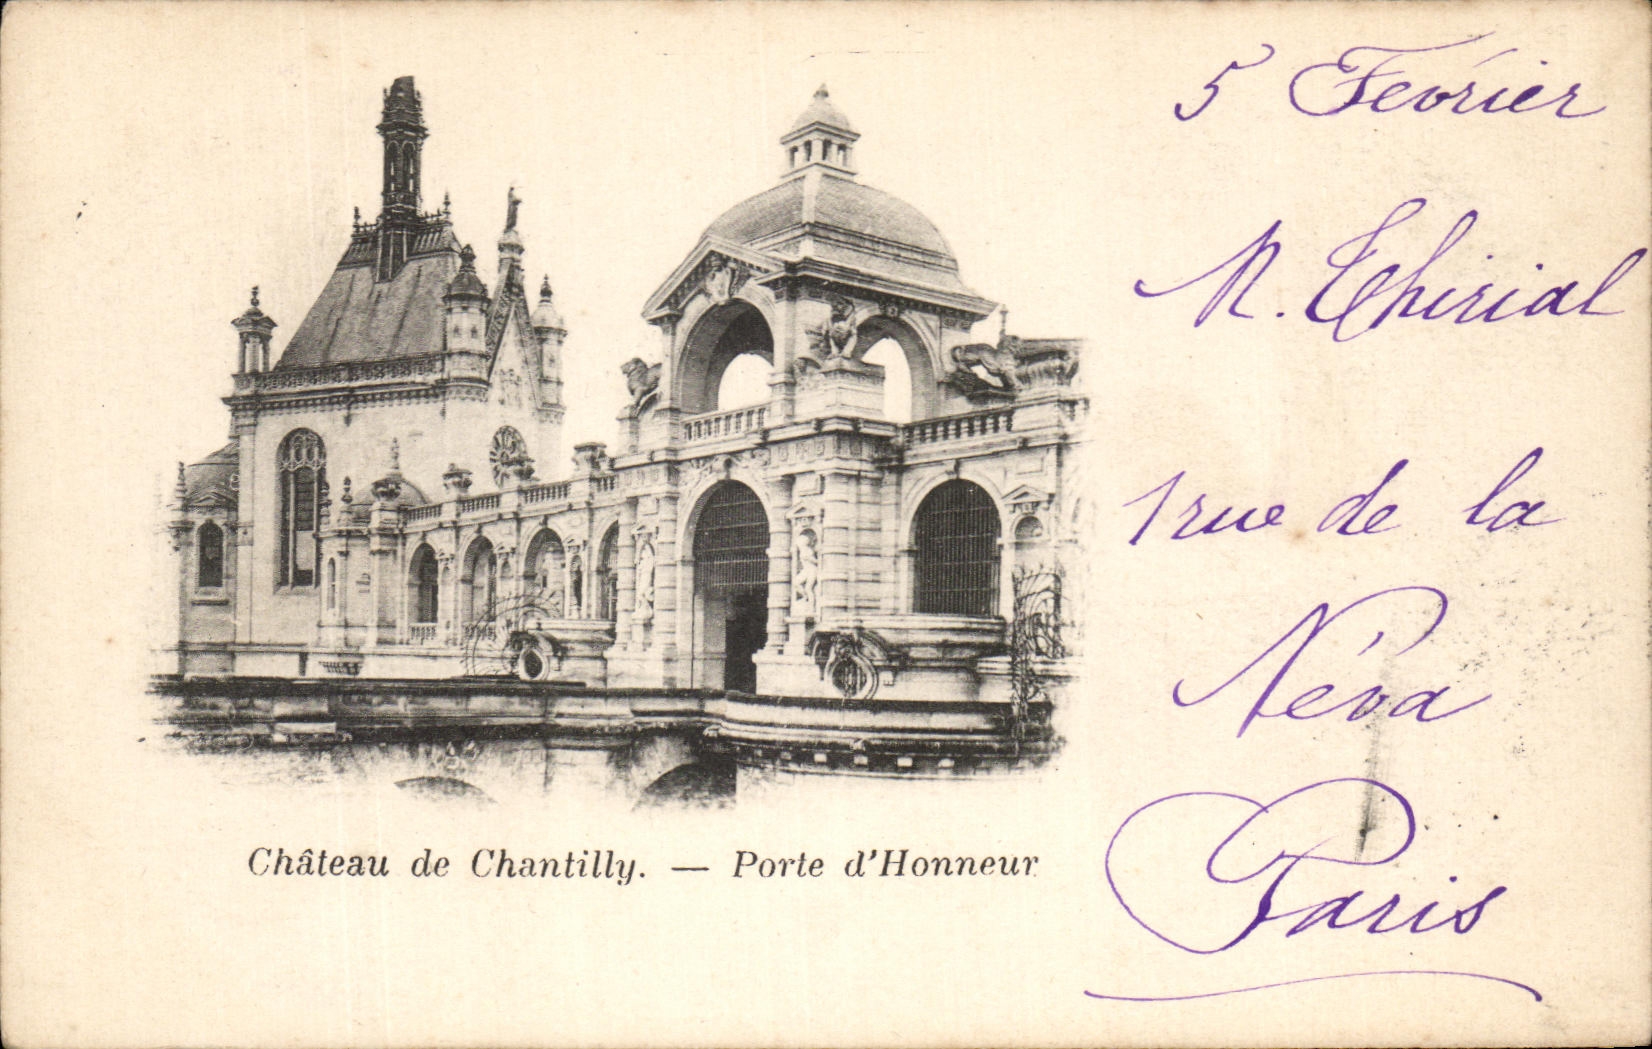 Château de Chantilly. — Porte d'Honneur
5 Fevrier
M. Thirial
1 rue de la
Néva
Paris